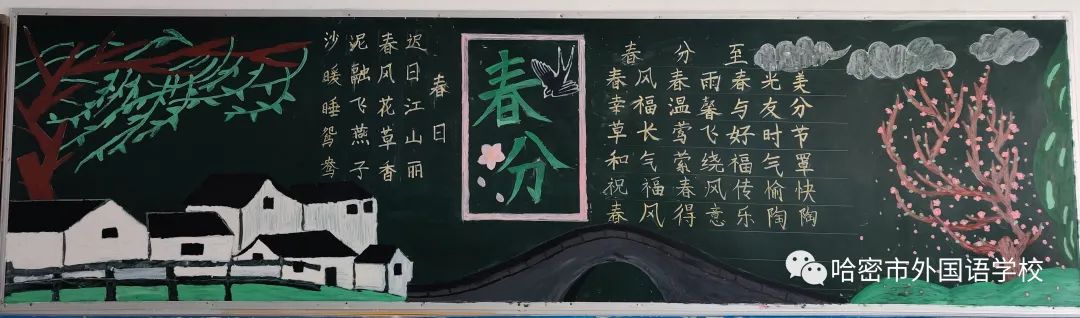 春日
迟日江山丽
春风花草香
泥融飞燕子
沙暖睡鸳鸯
春分
春分至
春风春雨春光美
幸福温馨与友分
草长莺飞好时节
和气萦绕福气罩
祝福春风传愉快
春风得意乐陶陶
哈密市外国语学校